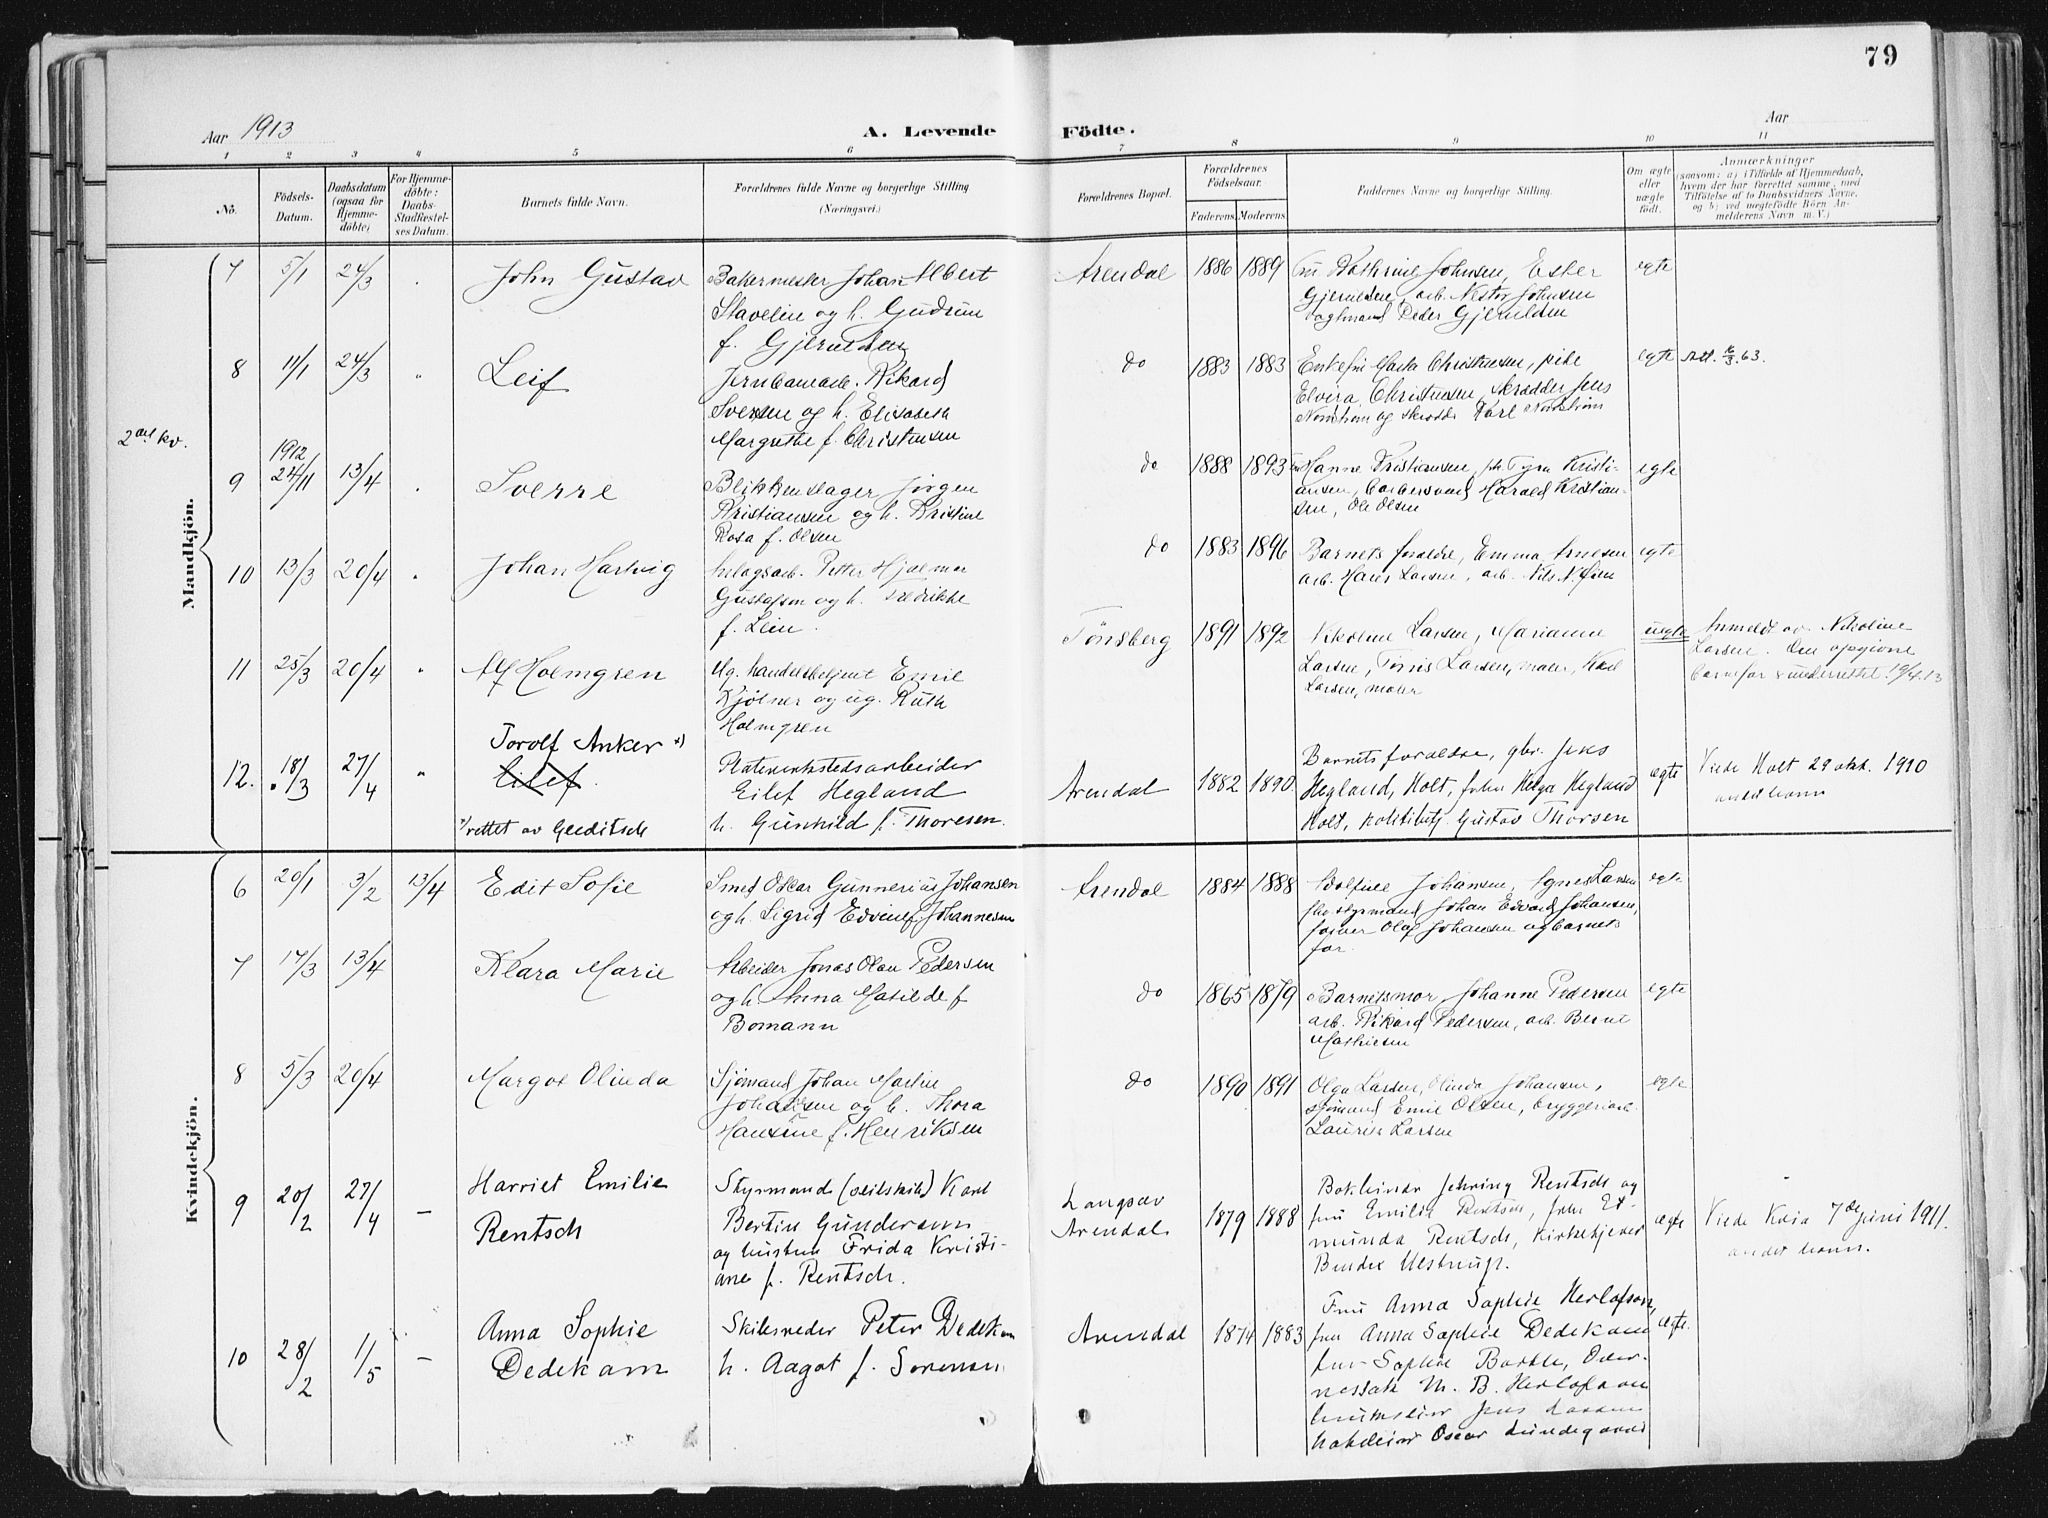 79
Aar 1913
A. Levende Födte.
Aar
1 2 3 4 5 6 7 8 9 10 11
No.
Födsels-Datum.
Daabsdatum (ogsaa for Hjemmedöbte)
For Hjemmedöbte: Daabs-Stadfestelses Datum.
Barnets fulde Navn.
Forældrenes fulde Navne og borgerlige Stilling (Næringsvei.)
Forældrenes Bopæl.
Forældrenes Födselsaar.
Faderens. Moderens.
Faddernes Navne og borgerlige Stilling.
Om ægte eller uægte födt.
Anmærkninger
(saasom: a) i Tilfælde af Hjemmedaab, hvem der har forrettet samme, med Tilföielse af to Daabsvidners Navne, og b) ved uægtefödte Börn Anmelderens Navn m. V.)
Mandkjön.
7 5/1 24/3 John Gustav
Bakermester Johan Albert
Stavelin og h. Gudrun
f. Gjeruldsen
Arendal 1886 1889
Fru Kathrine Johnsen, Ester
Gjeruldsen, arb. Nestor Johnsen
Peder Gjeruldsen
egte
8 11/1 24/3 Leif
Jernbanearb. Rikard
Svensen og h. Elisabeth
Margrethe f. Christensen
do 1883 1883
Enkefru Marta Christensen, pike
Elvira Christensen, skrædder Jens
Nordstrøm og skrædd. Karl Nordstrøm
egte
Att. 16/3.63.
2det kv.
9 1912 24/11 13/4 Sverre
Blikkenslager Jørgen
Kristiansen og h. Kristine
Rosa f. Olsen
do 1888 1893
Fru Hanne Kristiansen, pk. Tyra Kristi-
ansen, barbersvend Harald Kristian-
sen, Ole Olsen
egte
10 13/3 20/4 Johan Hartvig
Petter Hjalmar
Gustafsen og h. Fredrikke
f. Lein.
do 1883 1896
Barnets foreldre, Emma Arnesen
arb. Hans Larsen, arb. Nils N.
egte
11 25/3 20/4 Alf Holmgren
Ug. handelsbetjent Emil
Kjølner og ug. Ruth
Holmgren
Tønsberg 1891 1892
Nikoline Larsen, Marianne
Larsen, Tønis Larsen, maler, Karl
Larsen, maler
uegte
Anmeldt av Nikoline
Larsen. Den opgivne
barnefar underrettet 19/4.13
12. 18/3 27/4 Torolf Anker x)
Eilef.
x) rettet av Gleditsch
Eilef Hegland
h. Gunhild f. Thoresen.
Arendal 1882 1890
Barnets forældre, gbr. Jens
Hegland, Holt, frk. Helga Hegland
Holt, Gustav Thorsen
ægte
Viede Holt 29 okt. 1910
andet barn
Kvindekjön.
6 20/1 3/2 13/4 Edit Sofie
Smed Oscar Gunnerius Johansen
og h. Sigrid Edvine f. Johannesen
Arendal 1884 1888
Wolfine Johansen, Agnes Larsen
styrmand Johan Edvard Johansen,
Olaf Johansen og barnets
far.
egte
7 17/3 13/4 Klara Marie
Arbeider Jonas Olau Pedersen
og h. Anna Matilde f
Bomann
do 1865 1879
Barnets mor, Johanne Pedersen
arb. Rikard Pedersen, arb. Bernt
Mathiesen
egte
8 5/3 20/4 Margot Olinda
Sjømand Johan Martin
Johansen og h. Thora
Hansine f. Henriksen
do 1890 1891
Olga Larsen, Olinda Johansen,
sjømand Emil Olsen, bryggeriarb.
Laurits Larsen
egte
9 20/2 27/4 – Harriet Emilie
Rentsch
Styrmand (seilskib) Karl
Bertin Gundersen
og hustru Frida Kristi-
ane f. Rentsch.
Langsæv
Arendal 1879 1888
Bokbinder Rentsch og
fru Emilie Rentsch, frk Ed-
munda Rentsch, kirketjener
Bendix Ulstrup.
ægte
Viede Kria 7de juni 1911.
andet barn.
10 28/2 1/5 – Anna Sophie
Dedekam
Skibsreder Peter Dedekam
h. Aagot f. Sørensen
Arendal 1874 1883
Fru Anna Sophie Herlofson,
fru Anna Sophie Dedekam
fru Sophie Battle, Over-
M. B. Herlofson
Jens
Oscar Lundegaard
ægte.